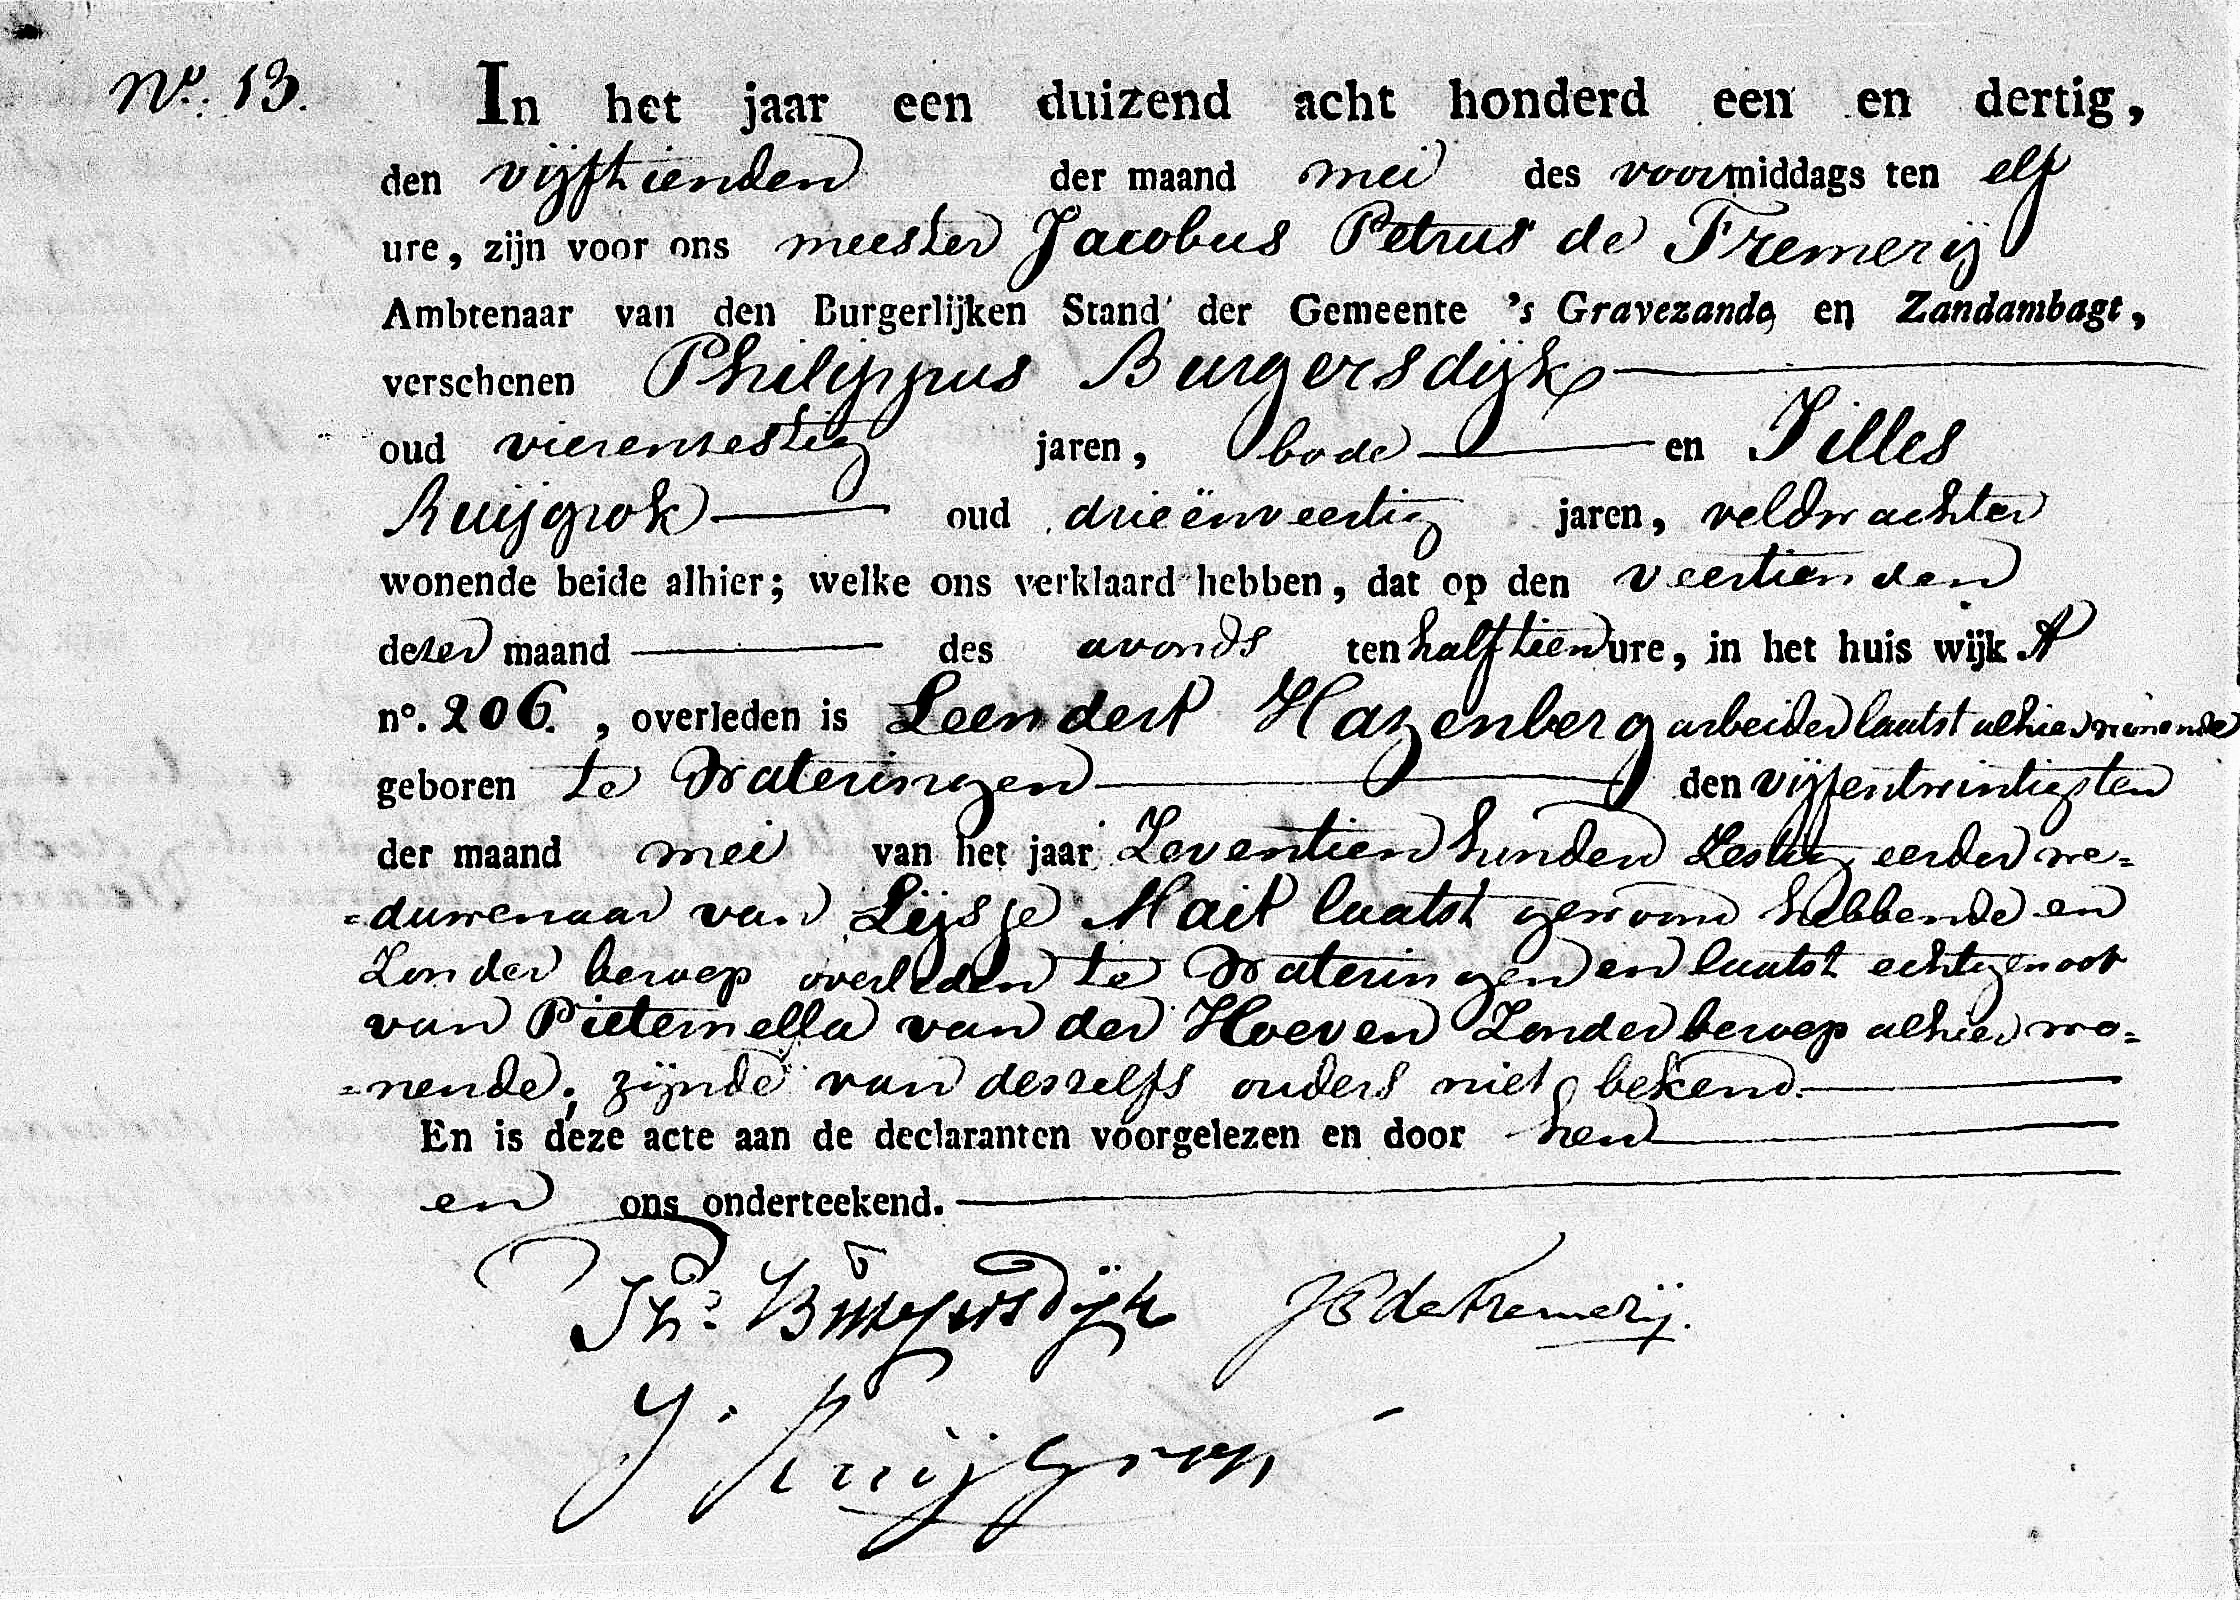 No. 13. In het jaar een duizend acht honderd een en dertig,
den vijftienden der maand mei des voormiddags ten elf
ure, zijn voor ons meester Jacobus Petrus de Fremerij
Ambtenaar van den Burgerlijken Stand der Gemeente 's Gravezande en Zandambagt,
verschenen Philippus Burgersdijk
oud vierenzestig jaren, bode en Jilles
Ruijgrok oud drieënveertig jaren, veldwachter
wonende beide alhier; welke ons verklaard hebben, dat op den veertienden
dezer maand des avonds ten half tien ure, in het huis wijk A
no. 206. , overleden is Leendert Hazenberg arbeider laatst alhier wonende
geboren te Wateringen den vijfentwintigsten
der maand mei van het jaar Zeventien hunderd Zestig eerder we=
=duwenaar van Lijsje Mait laatst gewoond hebbende en
Zonder beroep overleden te Wateringen en laatst echtgenoot
van Pieternella van der Hoeven Zonder beroep alhier wo=
=nende; zijnde van deszelfs ouders niet bekend.
En is deze acte aan de declaranten voorgelezen en door hen
en ons onderteekend.
Ph: Burgersdijk JP de Fremerij.
J: Ruijgrok